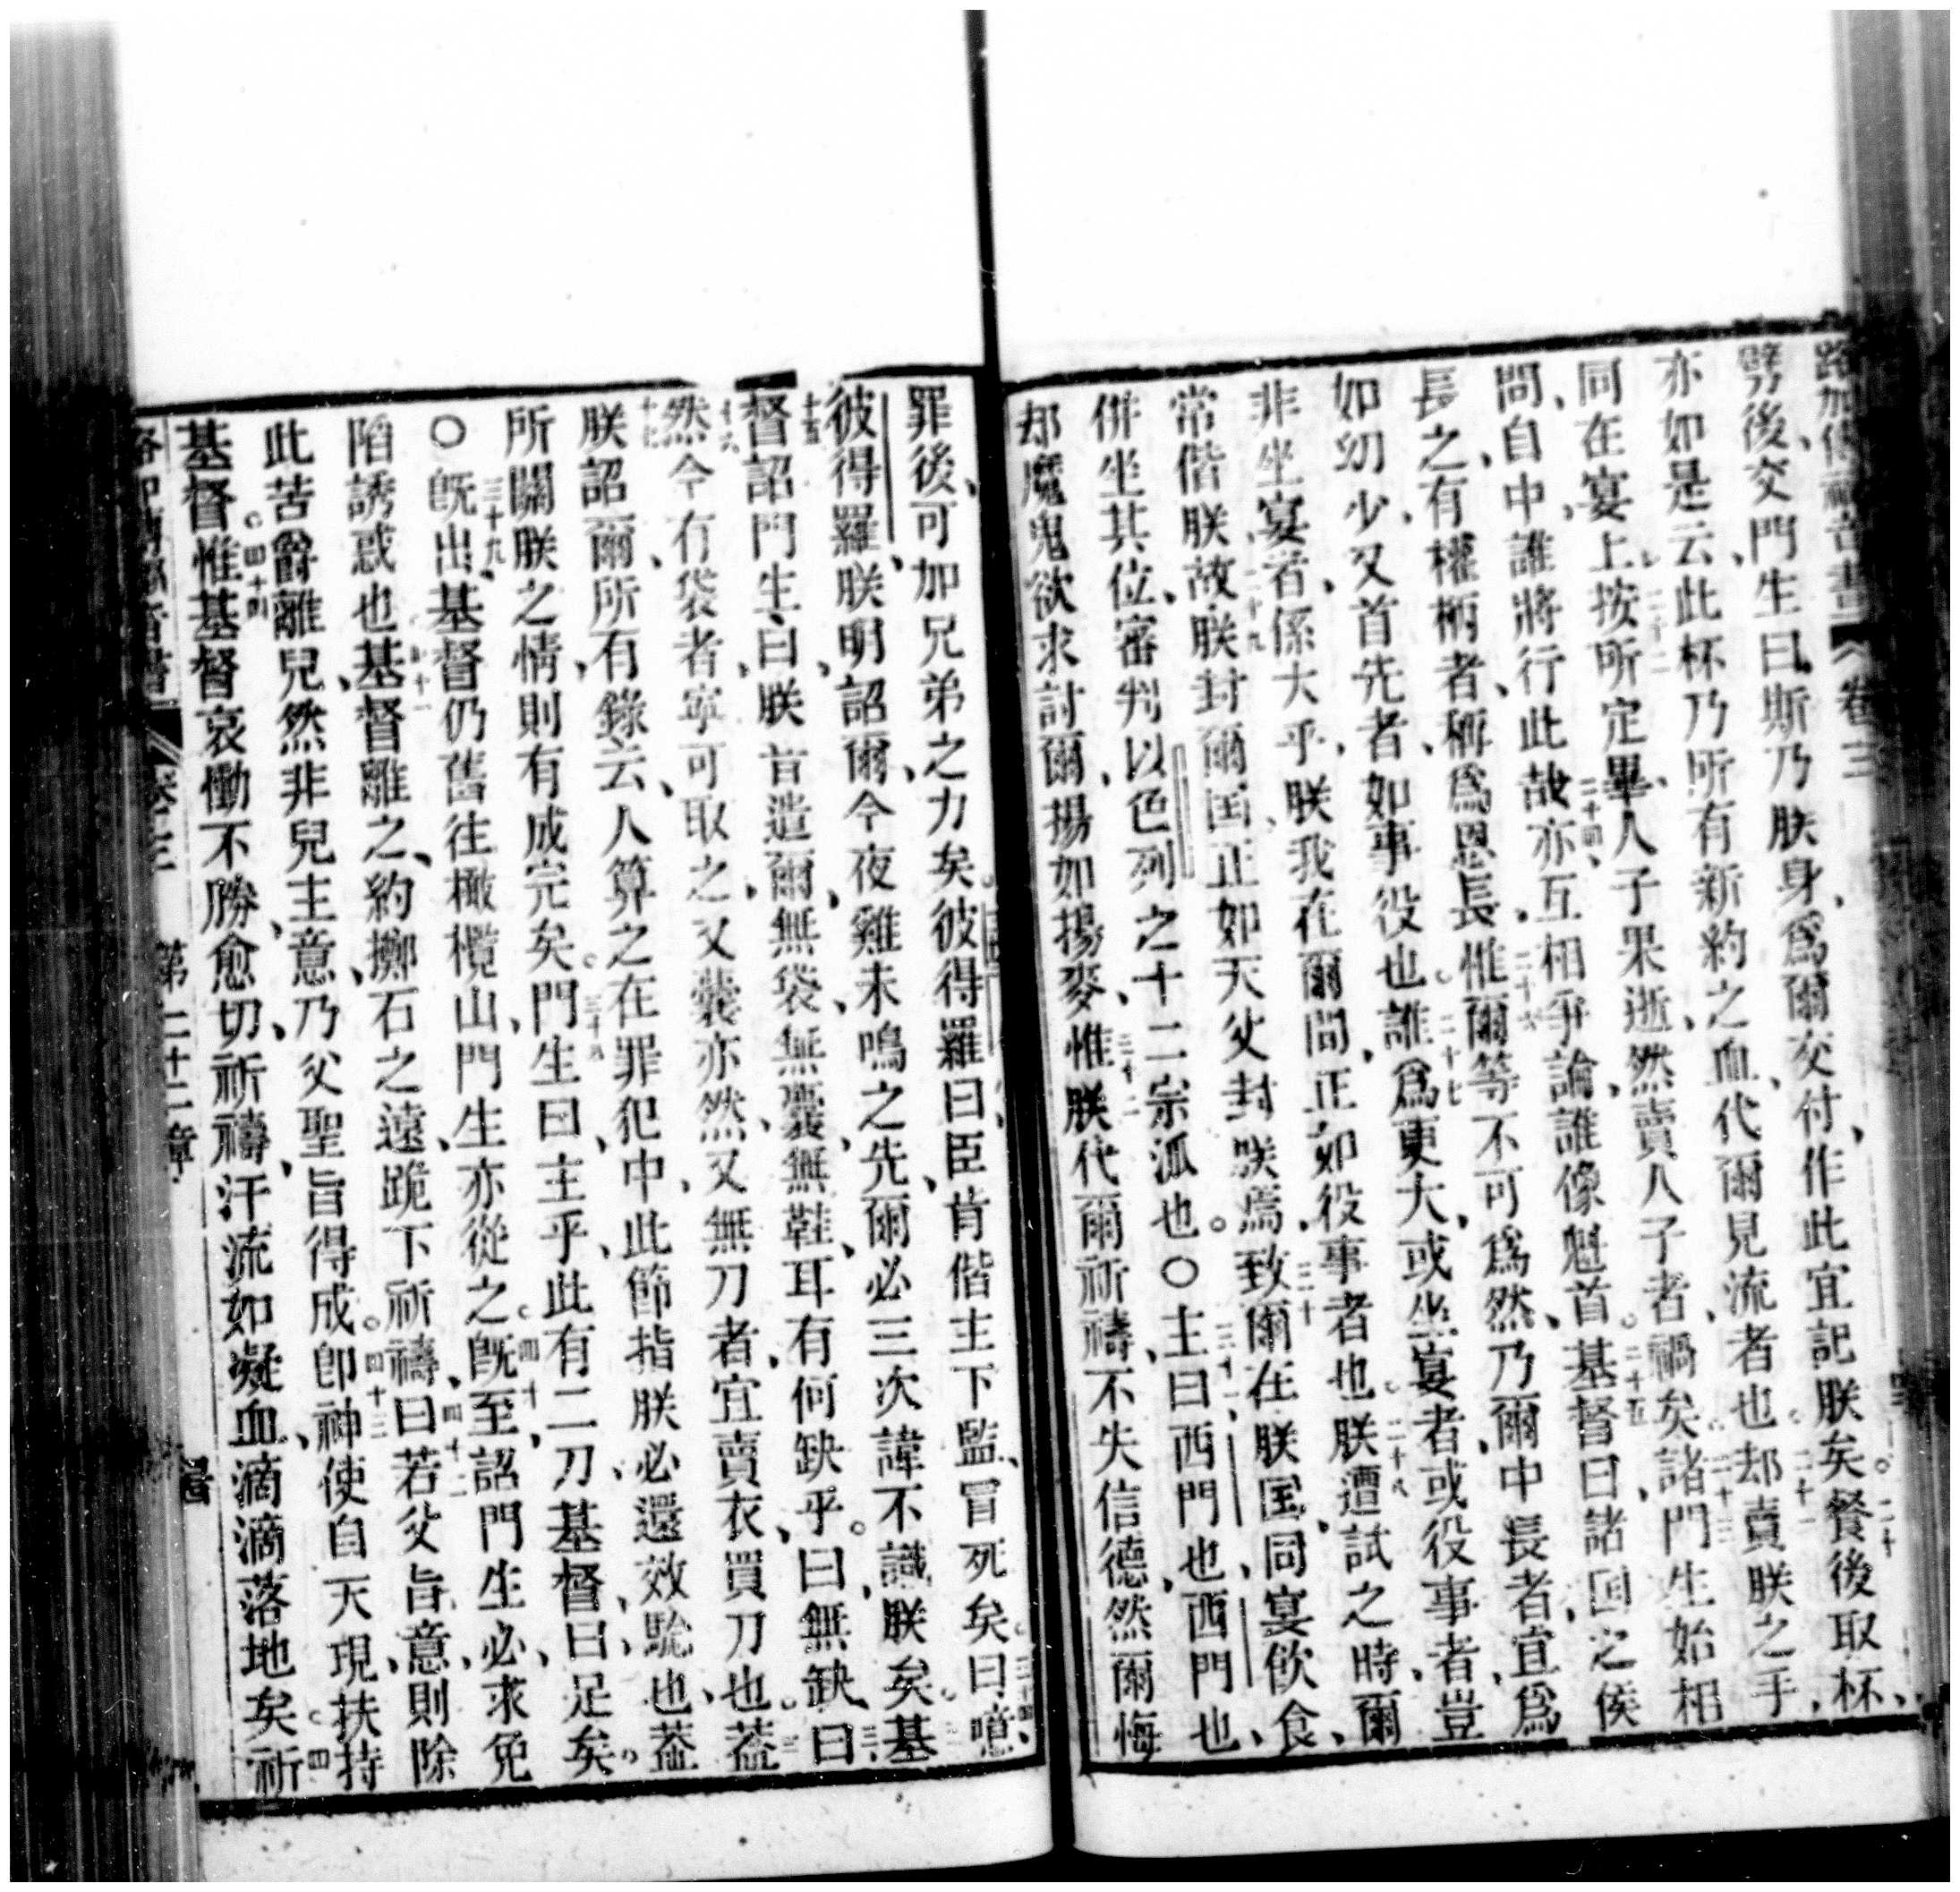 路加傳福音書 卷三
劈後、交門生曰、斯乃朕身、爲爾交付、作此宜記朕矣。二十餐後取杯、
亦如是云、此杯乃所有新約之血、代爾見流者也。二十一却賣朕之手、
同在宴上、二十二按所定畢、人子果逝、然賣人子者、禍矣。二十三諸門生始相
問、自中誰將行此哉、二十四亦互相爭論、誰像魁首。二十五基督曰、諸囯之侯
長之、有權柄者、稱爲恩長、二十六惟爾等不可爲然、乃爾中長者、宜爲
如幼少、又首先者、如事役也。二十七誰爲更大、或坐宴者、或役事者、豈
非坐宴者、係大乎、朕我在爾間、正如役事者也。二十八朕遭試之時、爾
常偕朕、二十九故朕封爾囯、正如天父封朕焉、三十致爾在朕囯、同宴飲食、
併坐其位、審判以色列之十二宗派也。〇三十一主曰、西門也、西門也、
却魔鬼欲求討爾、揚如揚麥、三十二惟朕代爾祈禱、不失信德、然爾悔
罪後、可加兄弟之力矣。彼得羅曰、臣肯偕主下監、冒死矣。三十四曰、噫、
彼得羅、朕明詔爾、今夜雞未鳴之先、爾必三次諱不識朕矣。基
督詔門生、曰、朕昔遣爾、無袋、無囊、無鞋、耳有何缺乎。曰、無缺、曰、
然今有袋者、寧可取之、又囊亦然、又無刀者、宜賣衣、買刀也。蓋
朕詔爾、所有錄云、人算之在罪犯中、此節指朕、必還效騐也、蓋
所關朕之情、則有成完矣。三十八門生曰、主乎、此有二刀、基督曰、足矣。
〇三十九旣出、基督仍舊往橄欖山、門生亦從之。四十旣至、詔門生、必求免
陷誘惑也、四十一基督離之、約擲石之遠、跪下祈禱、四十二曰、若父旨意、則除
此苦爵離兒、然非兒主意、乃父聖旨得成。四十三卽神使自天現、扶持
基督。四十四惟基督哀慟不勝、愈切祈禱、汗流如凝血、滴滴落地矣。祈
卷三 第二十二章